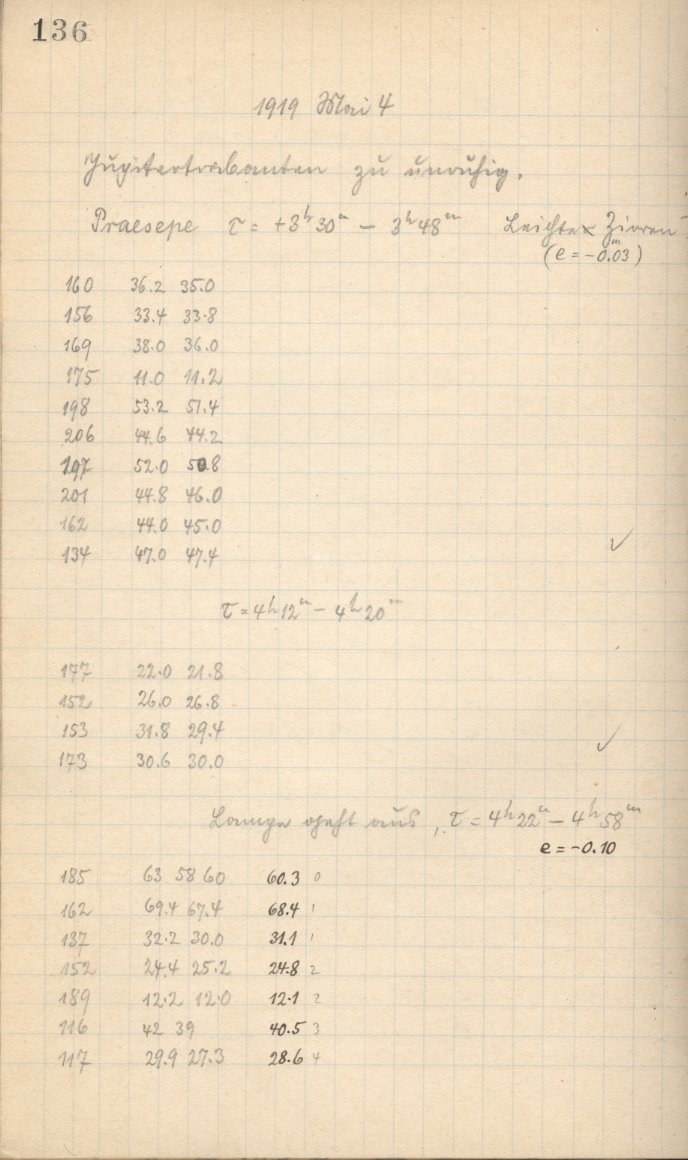 136
1919 Mai 4
Jupitertrabanten zu unruhig.
Praesepe τ = +3ʰ30ᵐ – 3ʰ48ᵐ Leichte
(e = -0.ᵐ03)
160 36.2 35.0
156 33.4 33.8
169 38.0 36.0
175 11.0 11.2
198 53.2 51.4
206 44.6 44.2
197 52.0 50.8
201 44.8 46.0
162 44.0 45.0
134 47.0 47.4
τ = 4ʰ12ᵐ – 4ʰ20ᵐ
177 22.0 21.8
152 26.0 26.8
153 31.8 29.4
173 30.6 30.0
Lampe geht aus, τ = 4ʰ22ᵐ – 4ʰ58ᵐ
e = -0.10
185 63 58 60 60.3 0
162 69.4 67.4 68.4 1
137 32.2 30.0 31.1 1
152 24.4 25.2 24.8 2
189 12.2 12.0 12.1 2
116 42 39 40.5 3
117 29.9 27.3 28.6 4